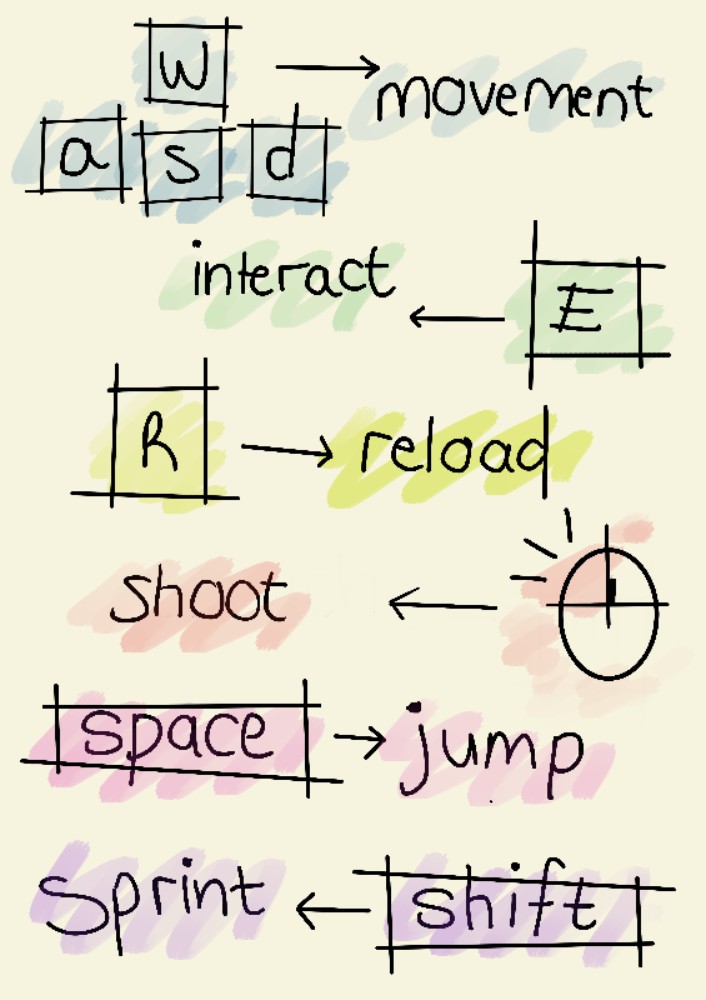 w
movement
a s d
interact
E
R reload
shoot
space jump
sprint shift